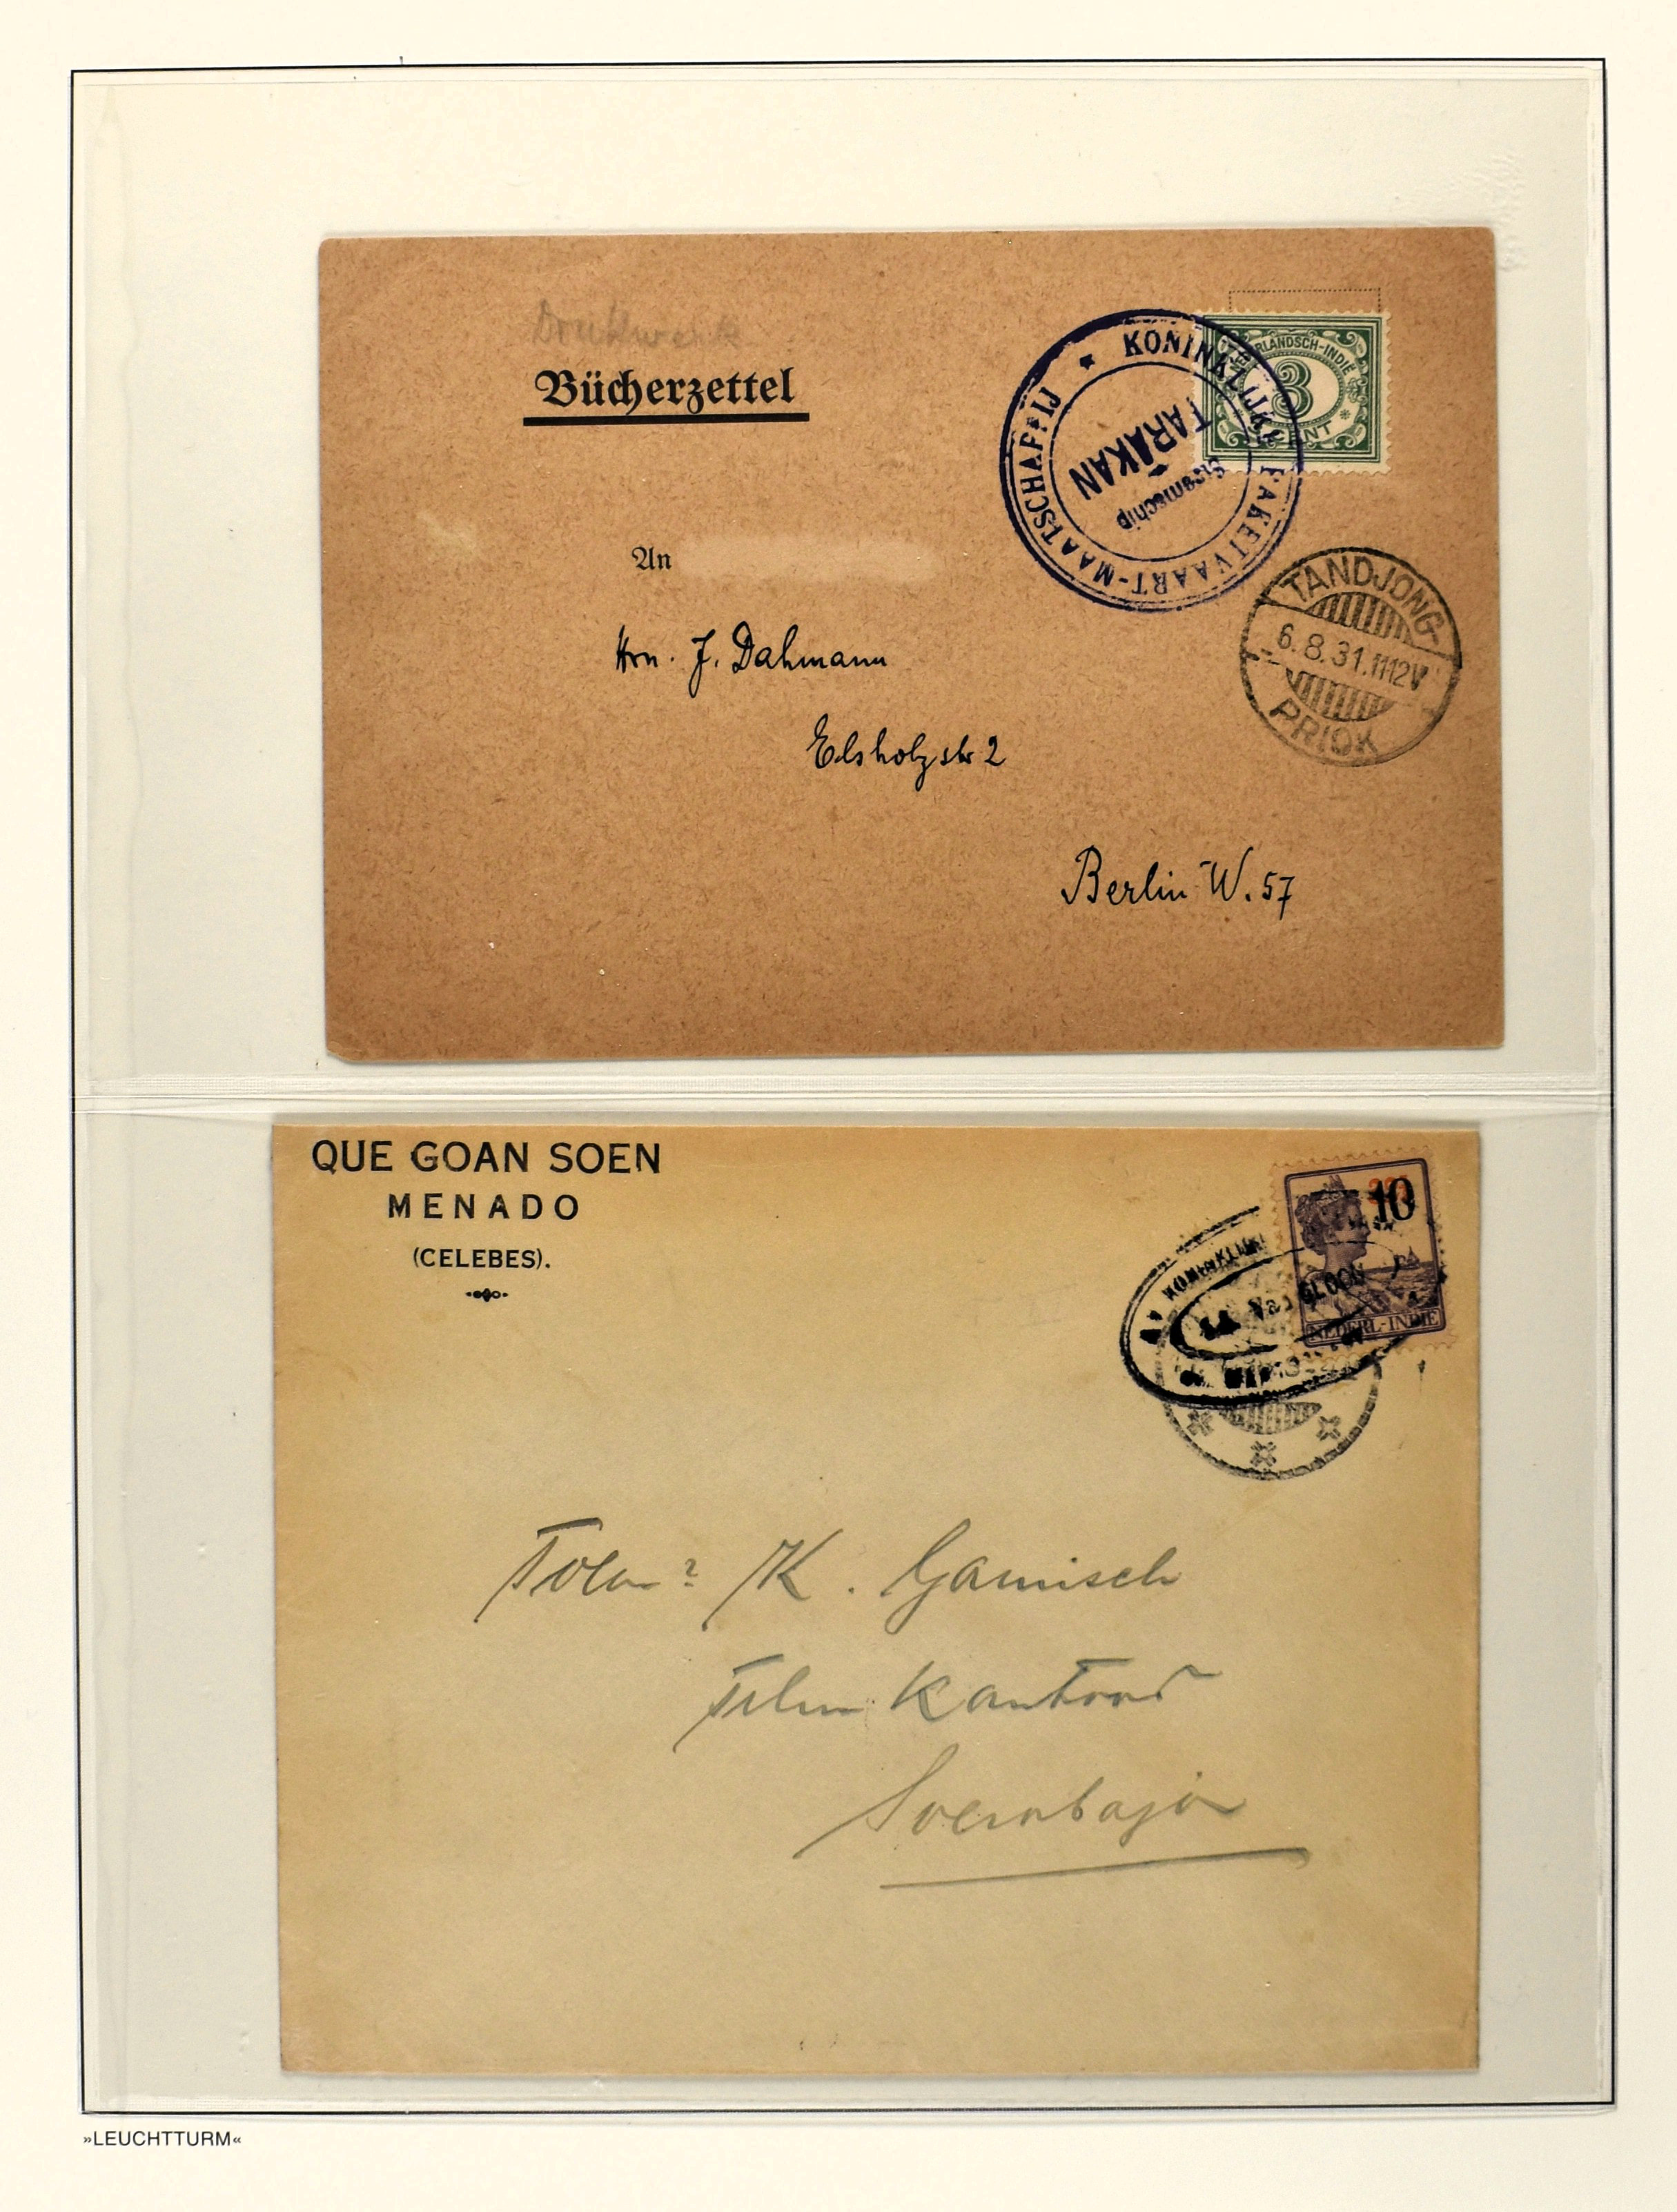 Drukwerk
Bücherzettel
An
Hrn. J. Dahmann
Elsholzstr 2
Berlin W. 57
NEDERLANDSCH-INDIË
3
CENT
★ KONINKLIJKE PAKETVAART-MAATSCHAPPIJ
Stoomschip
TARAKAN
TANDJONG
6.8.31.1112V
PRIOK
QUE GOAN SOEN
MENADO
(CELEBES).
10
NEDERL-INDIË
KONINKLIJKE
Van CLOON
K. Gamisch
Kantoor
Soerabaja
»LEUCHTTURM«